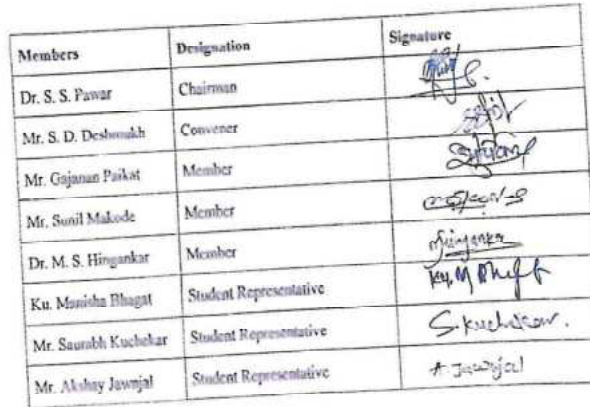 Members Designation Signature
Dr. S. S. Pawar Chairman
Mr. S. D. Deshmukh Convener
Mr. Gajanan Paikat Member
Mr. Sunil Makode Member
Dr. M. S. Hingankar Member Mhingankar
Ku. Manisha Bhagat Student Representative Ku. M Bhagat
Mr. Saurabh Kuchekar Student Representative S. Kuchekar.
Mr. Akshay Jawnjal Student Representative A. Jawnjal